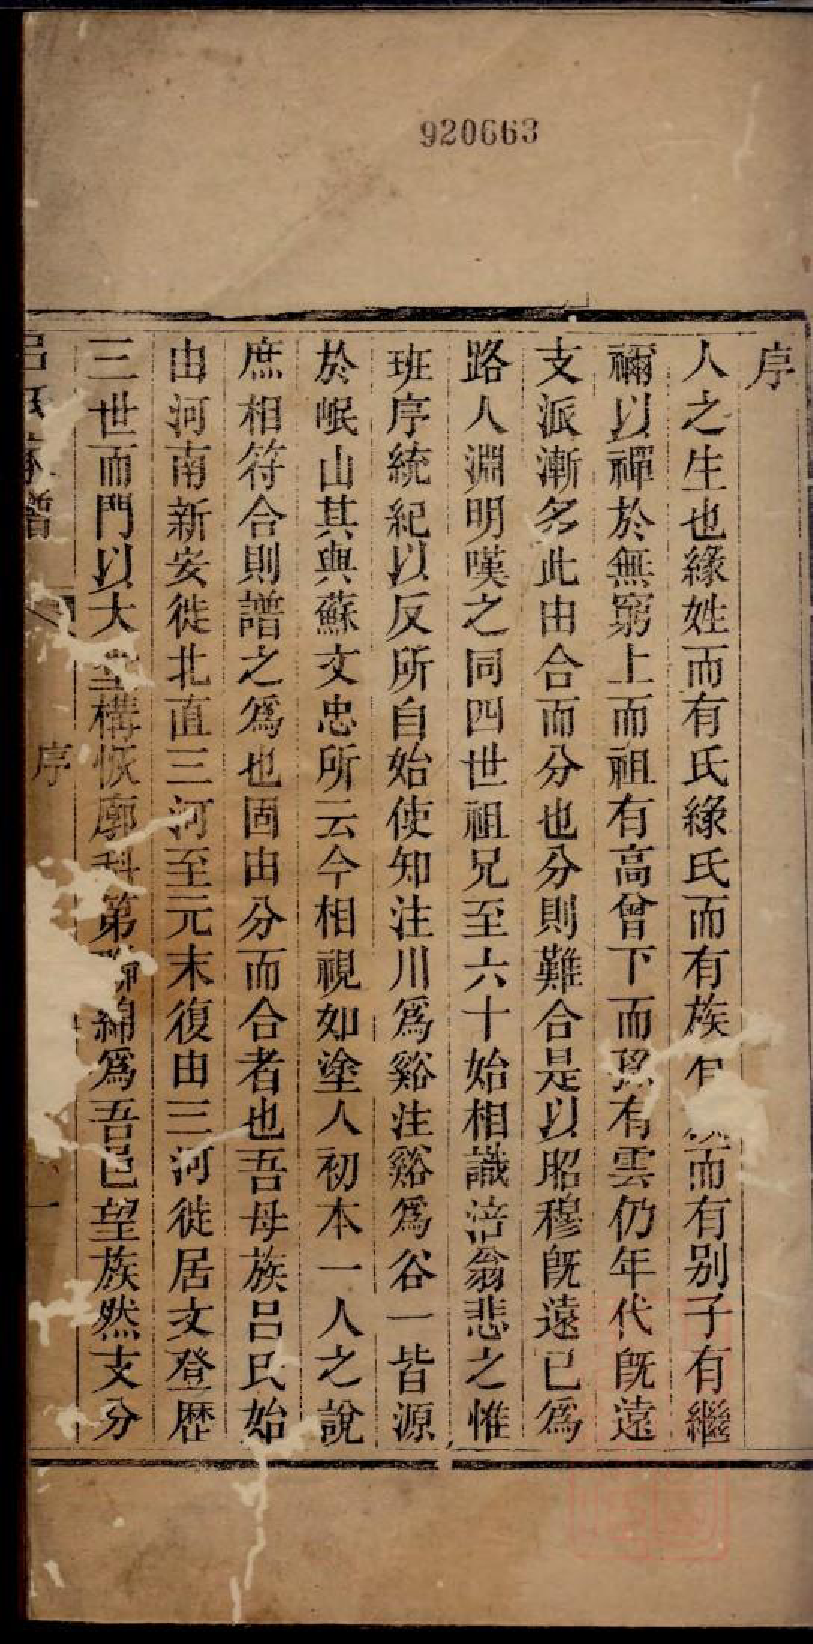 920663
序
人之生也緣姓而有氏緣氏而有族有而有別子有繼
禰以禪於無窮上而祖有高曾下而孫有雲仍年代旣遠
支派漸多此由合而分也分則難合是以昭穆旣遠已爲
路人淵明嘆之同四世祖兄至六十始相識涪翁悲之惟
班序統紀以反所自始使知注川爲谿注谿爲谷一皆源
於岷山其與蘇文忠所云今相視如塗人初本一人之說
庶相符合則譜之爲也固由分而合者也吾母族呂氏始
由河南新安徙北直三河至元末復由三河徙居文登歴
三世而門以大堂構恢廓科第聯綿爲吾邑望族然支分
呂氏家譜
序
一